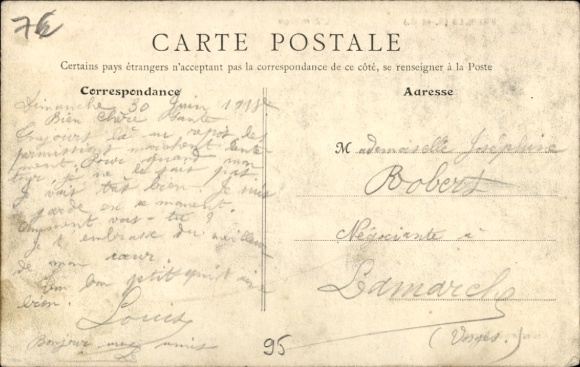 76
CARTE POSTALE
Certains pays étrangers n'acceptant pas la correspondance de ce côté, se renseigner à la Poste
Correspondance
Adresse
Dimanche 30 Juin 1918
Bien chère Tante
Toujours là au repos les
permissions marchent lente-
ment. Pour quand mon
tour, je ne le sais pas.
Je vais très bien. Je suis
de garde en ce moment.
Comment vas-tu ?
Je t'embrasse du meilleur
de mon cœur.
Ton bon petit qui t'aime
bien.
Louis
Bonjour aux amis
Mademoiselle Joséphine
Robert
Négociante à
Lamarche
(Vosges)
95